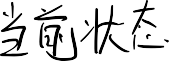 当前状态